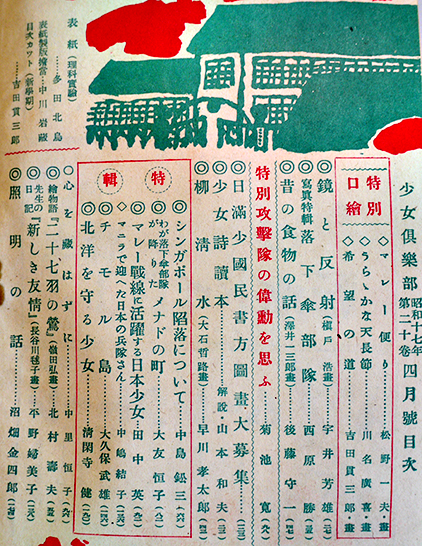 少女俱樂部 昭和十七年 第二十卷 四月號目次
特別口繪
◇マレー便り……松野一夫・畫
◇うらゝかな天長節……川名廣喜・畫
◇希望の道……吉田貫三郎・畫
◎鏡と反射(槇戸浩畫)……宇井芳雄
寫眞特輯 落下傘部隊……西原勝
◎昔の食物の話(澤井一三郎畫)……後藤守一
特別攻擊隊の偉勳を思ふ……菊池寬
◎日滿少國民書方圖畫大募集
◎少女詩讀本……解說・山本和夫
◎柳淸水(大石哲路畫)……早川孝太郎
特輯
◎シンガポール陷落について……中島鉦三
◎わが落下傘部隊が降りた メナドの町……大友恒子
◎マレー戰線に活躍する日本少女……田中英
◇マニラで迎へた日本の兵隊さん……中嶋結子
◎チモル島……大久保武雄
◎北洋を守る少女……淸閑寺健
◎心を藏はずに……中里恒子
◎繪物語『二十七羽の鷲』(嶺田弘畫)……北村壽夫
◎先生の日記『新しき友情』(長谷川毬子畫)……平野婦美子
◎照明の話……沼畑金四郎
表紙(理科實驗)……多田北鳥
表紙製版繪當……中川岩藏
目次カット(新學期)……吉田貫三郎